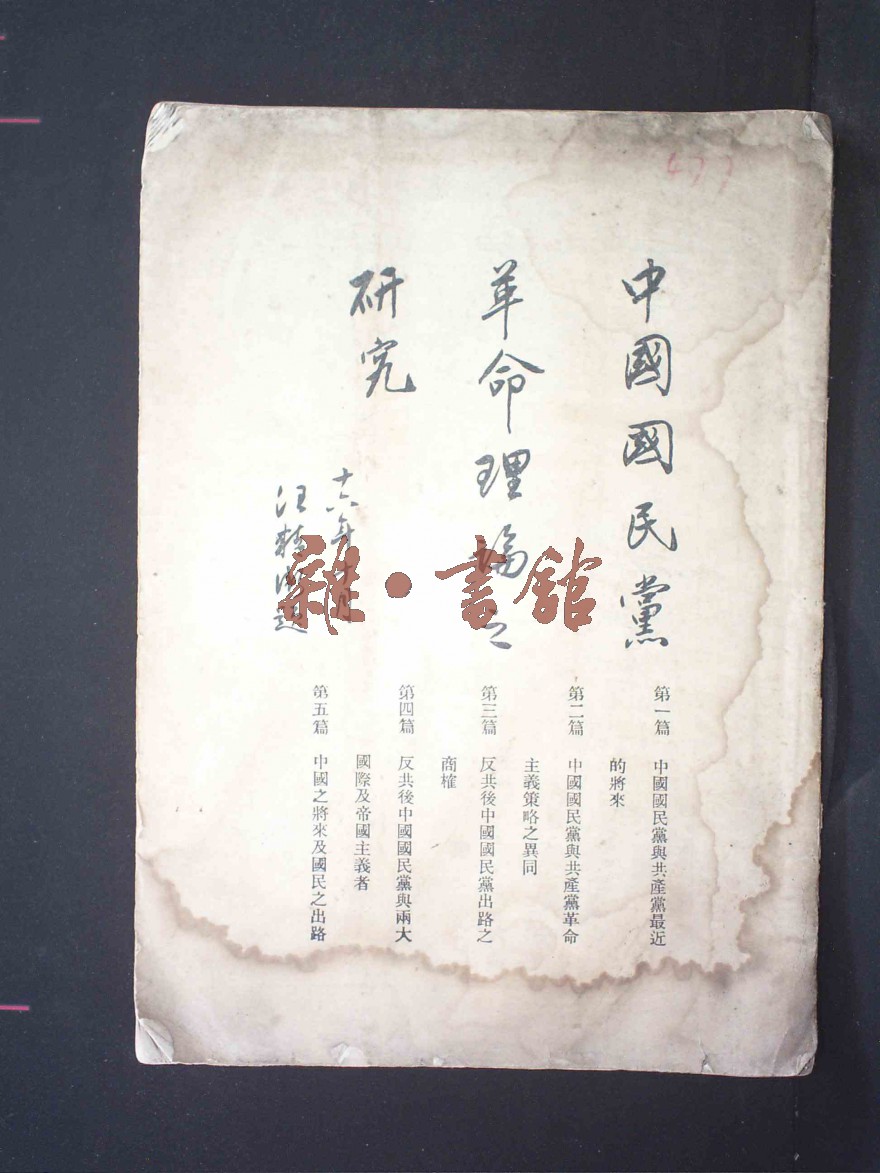 477
中國國民黨
革命理論之
研究
十六年十月
汪精衛題
雜·書館
第一篇 中國國民黨與共產黨最近
的將來
第二篇 中國國民黨與共產黨革命
主義策略之異同
第三篇 反共後中國國民黨出路之
商榷
第四篇 反共後中國國民黨與兩大
國際及帝國主義者
第五篇 中國之將來及國民之出路